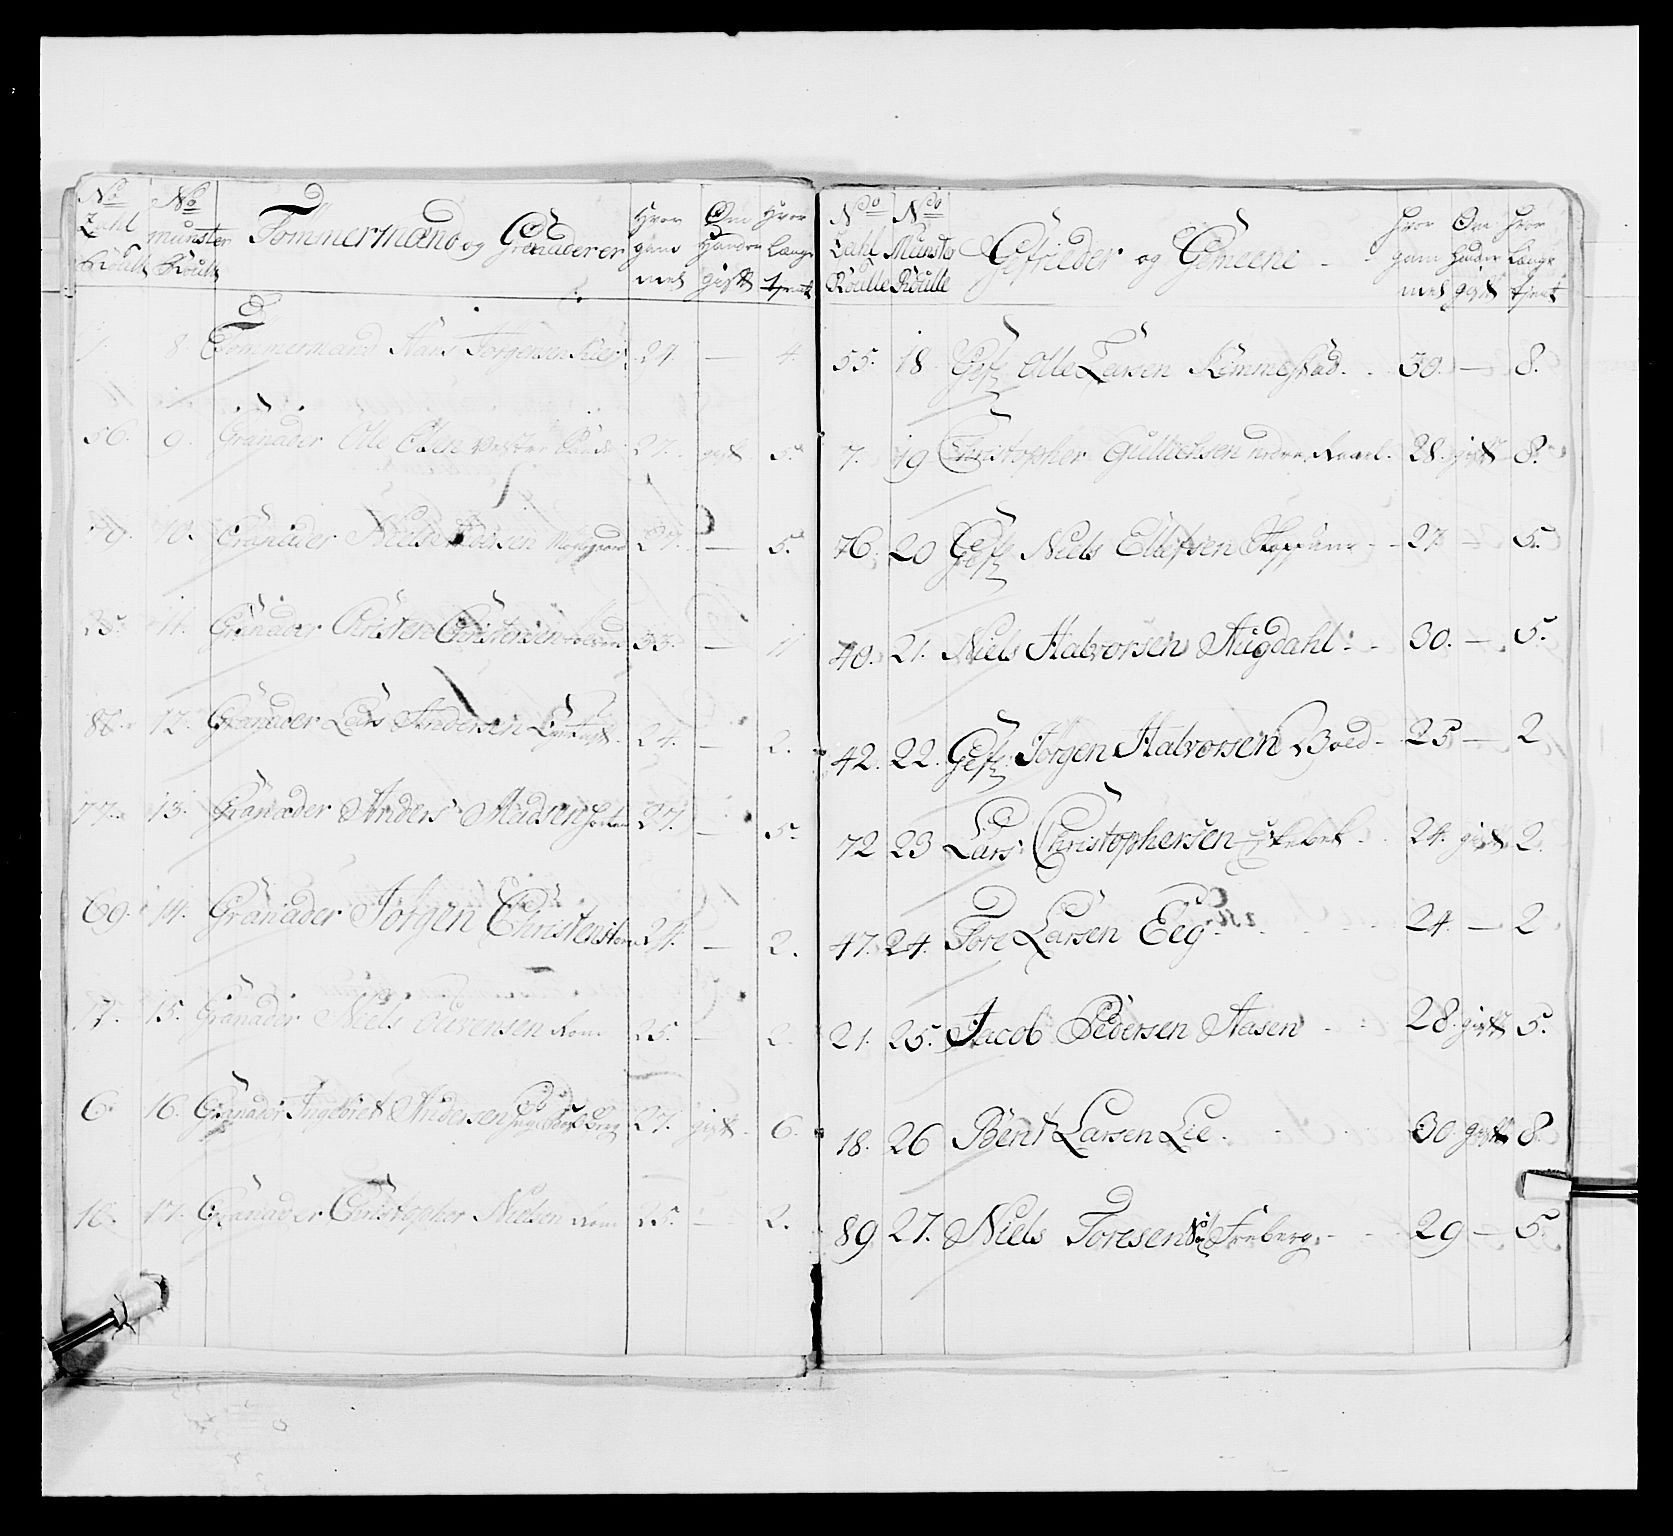 No Zahl Roulle | No Munster Roulle | Tommermænd og Granaderer | Hvor gam̄el | Om Hand er gift | Hvor Længe tjent
1. 8. Tommermand Hans Jørgensen 27. — 4.
56. 9. Granader Olle Olsen Vestre 27. gift 5.
10. Granader Niels Pedersen 27. — 5.
25. 11. Granader Christen Christensen 33. — 11
12. Granader Lars Andersen 24. — 2.
77. 13. Granader Anders Madsen 27. — 5.
69. 14. Granader Jørgen Christensen 24. — 2.
17. 15. Granader Niels Laurensen 25. — 2.
6. 16. Granader Ingebret Andersen 27. gift 6.
16. 17. Granader Christopher Nielsen 25. — 2.
No Zahl Roulle | No Munster Roulle | Gefrieder og Gemeene | Hvor gam̄el | Om hand er gift | Hvor Længe tjent
55. 18 Gefr Olle Larsen Kimmestad. 30. — 8.
7. 19 Christopher Gulbrhsen nedre 28. gift 8.
76. 20 Gefr Niels Ellefsen 27. — 5.
40. 21. Niels Halvorsen Augdahl 30. — 5.
42. 22. Gefr Jørgen Halvorsen Boed 25 — 2
72 23 Lars Christophersen 24. gift 2.
47. 24. Tore Larsen Eeg 24. — 2
21. 25. Jacob Pedersen Aasen 28. gift 5.
18. 26 Bent Larsen Lie 30. gift 8.
89 27. Niels Toresen Freberg 29 — 5.